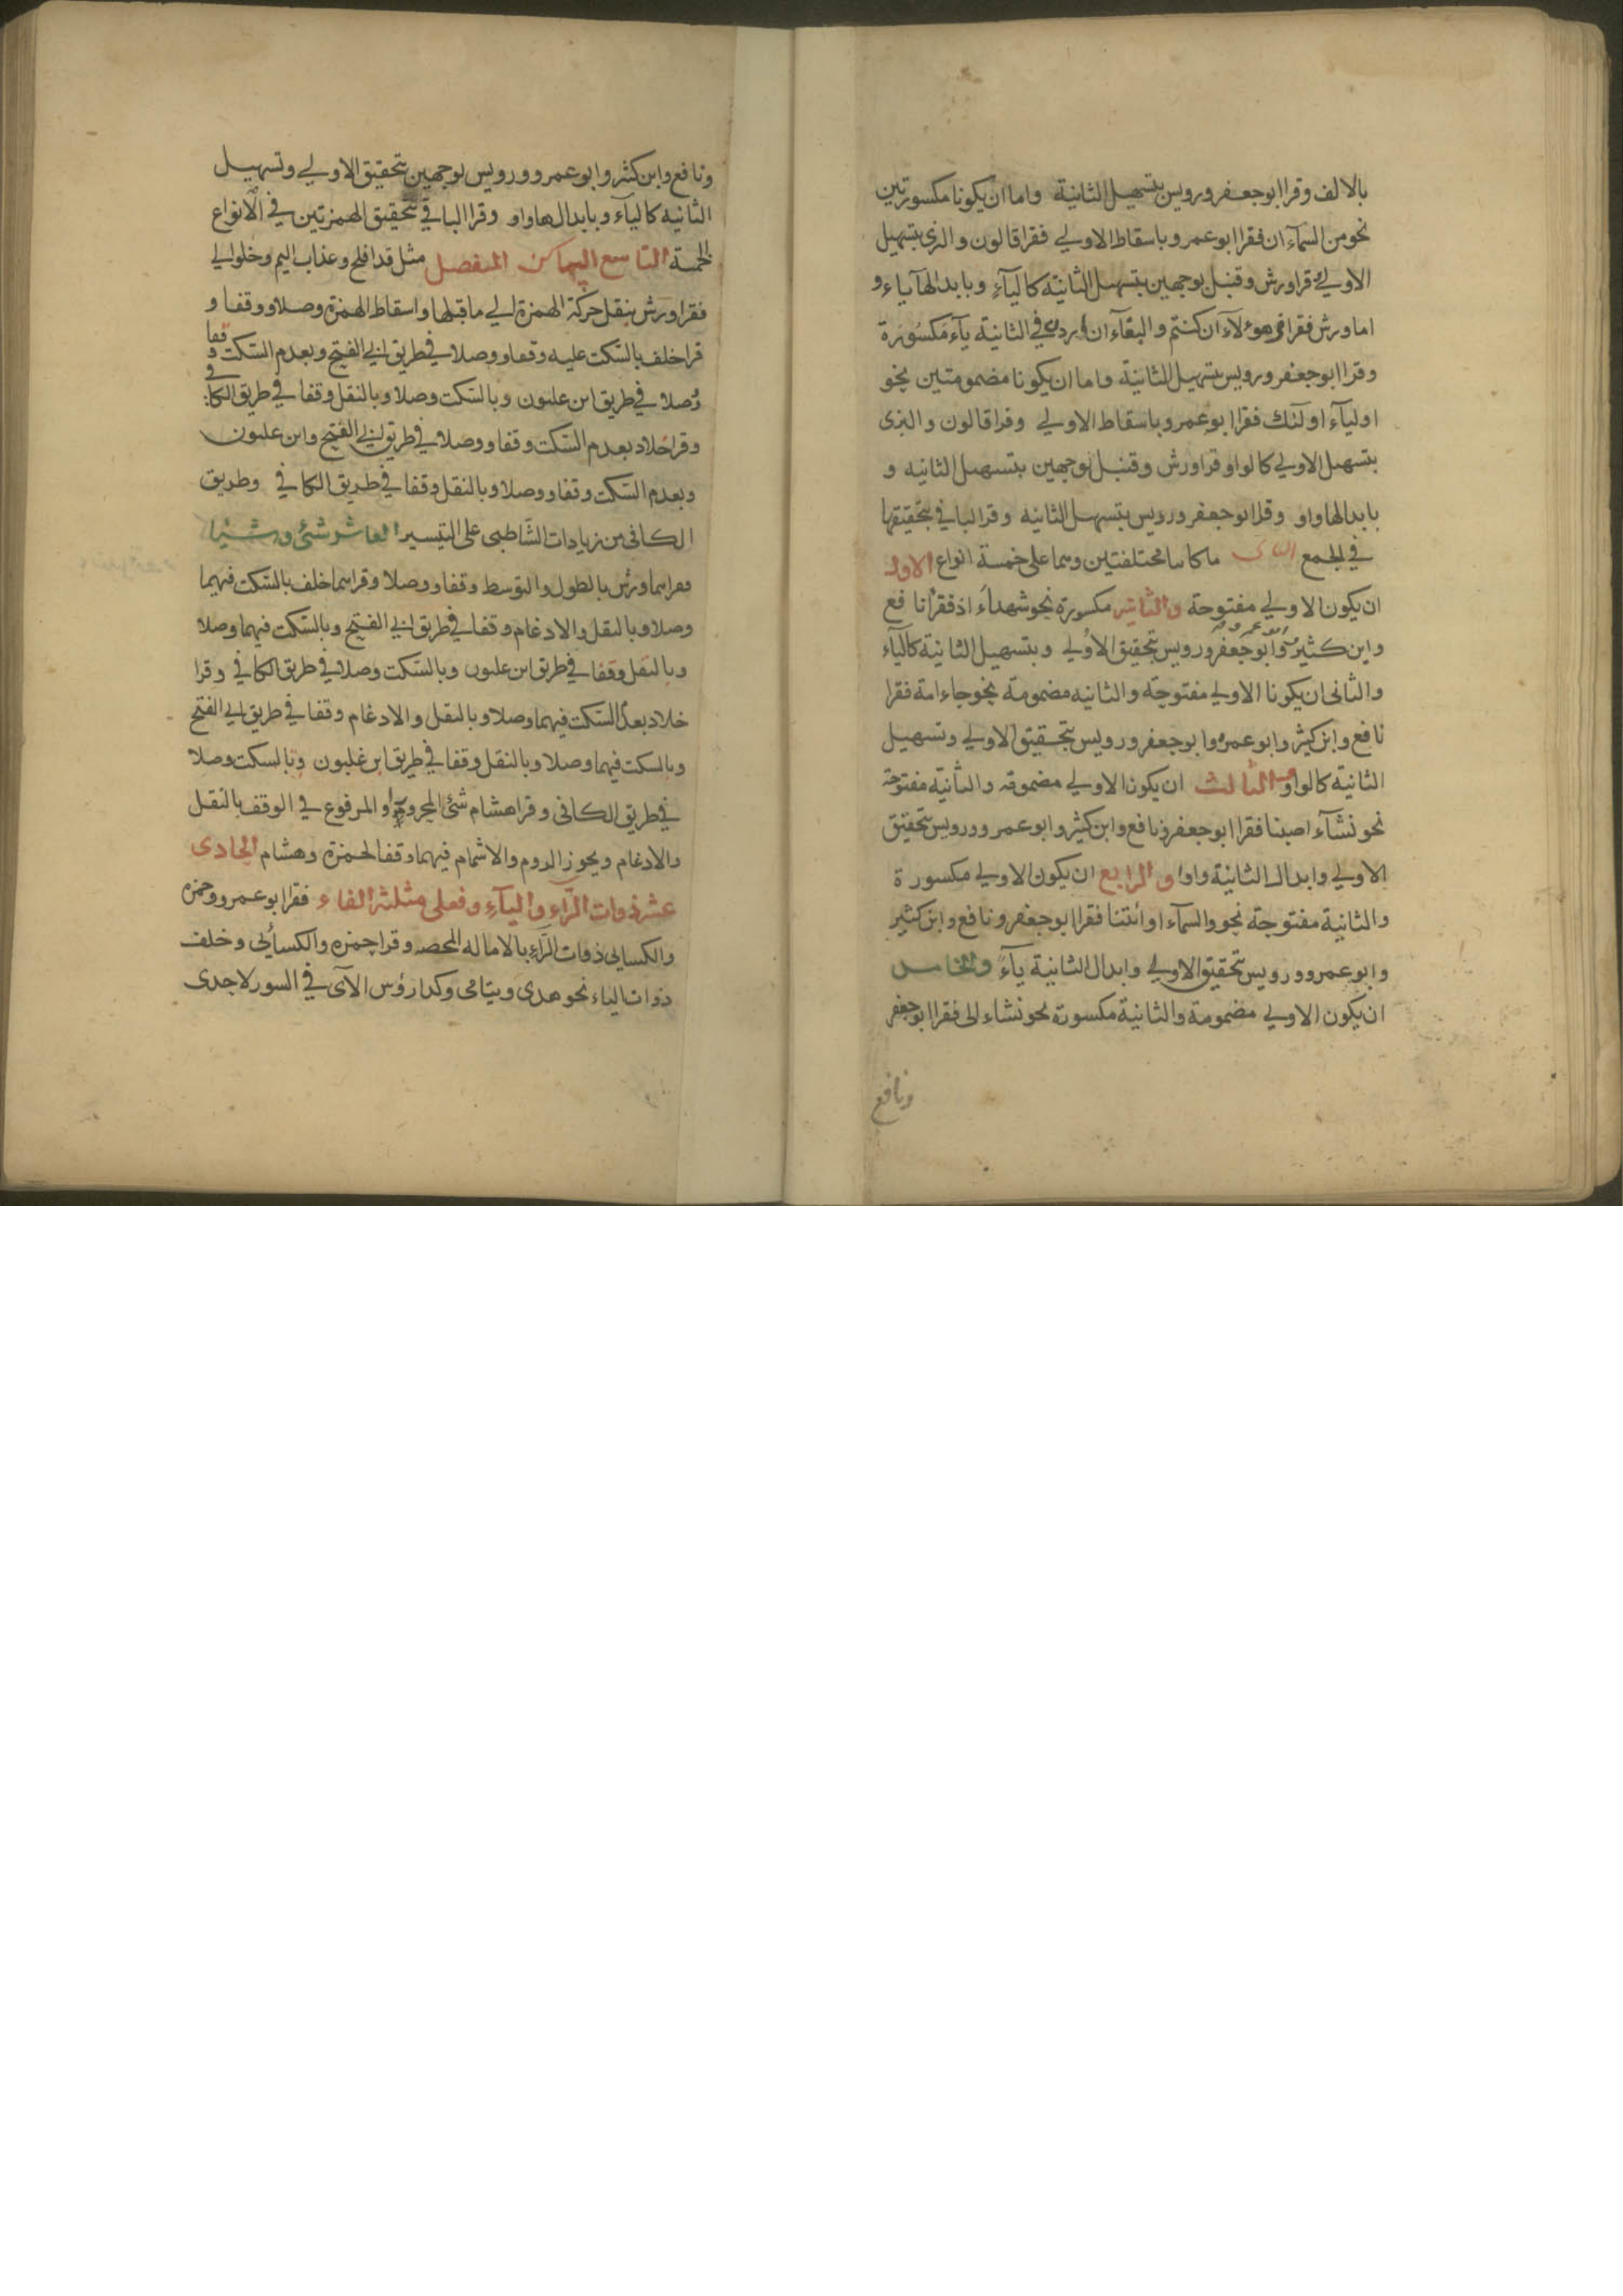 بالالف وقرا ابو جعفر ورويس بتسهيل الثانية واما ان يكونا مكسورتين
نحو من السمآء ان فقرا ابو عمرو باسقاط الاولي فقرا قالون والبزى بتسهيل
الاولي وقرا ورش وقنبل بوجهين بتسهيل الثانية كاليآء وبابدالها يآء و
اما ورش فقرا في هوءلآء ان كنتم والبغآء ان اردن في الثانية يآء مكسورة
وقرا ابو جعفر ورويس بتسهيل الثانية واما ان يكونا مضمومتين نحو
اوليآء اولئك فقرا ابو عمرو باسقاط الاولي وقرا قالون والبزى
بتسهيل الاولي كالواو وقرا ورش وقنبل بوجهين بتسهيل الثانيه و
بابدالها واو وقرا ابو جعفر ورويس بتسهيل الثانيه وقرا الباقي بتحقيقها
في الجمع الثانى ما كانتا مختلفتين وسما على خمسة انواع الاول
ان يكون الاولي مفتوحة والثانيه مكسورة نحو شهداء اذ فقرأ نافع
وابن كثير وابو عمرو وابو جعفر ورويس بتحقيق الاولي وبتسهيل الثانية كاليآء
والثانى ان يكونا الاولي مفتوحة والثانيه مضمومة نحو جاء امة فقرا
نافع وابن كثير وابو عمرو وابو جعفر ورويس بتحقيق الاولي وتسهيل
الثانية كالواو والثالث ان يكون الاولي مضمومة والثانية مفتوحة
نحو نشآء اصبنا فقرا ابو جعفر ونافع وابن كثير وابو عمرو ورويس بتحقيق
الاولي وابدال الثانية واوا والرابع ان يكون الاولي مكسورة
والثانية مفتوحة نحو والسمآء او ائتنا فقرا ابو جعفر ونافع وابن كثير
وابو عمرو ورويس بتحقيق الاولي وابدال الثانية يآء والخامس
ان يكون الاولي مضمومة والثانية مكسورة نحو نشاء الى فقرا ابو جعفر
ونافع
ونافع وابن كثير وابو عمرو ورويس بوجهين بتحقيق الاولي وتسهيل
الثانيه كاليآء وبابدالها واو وقرا الباقي بتحقيق الهمزتين في الانواع
الخمسة التاسع الساكن المنفصل مثل قد افلح وعذاب اليم وخلوا الي
فقرا ورش بنقل حركة الهمزة الي ما قبلها واسقاط الهمزة وصلا ووقفا و
قرا خلف بالسكت عليه وقفا ووصلا في طريق ابي الفتح وبعدم السكت وقفا
وصلا في طريق ابن غلبون وبالسكت وصلا وبالنقل وقفا في طريق الكافي
وقرا خلاد بعدم السكت وقفا ووصلا في طريق ابي الفتح وابن غلبون
وبعدم السكت وقفا ووصلا وبالنقل وقفا في طريق الكافي وطريق
الكافى من زيادات الشاطبى على التيسير العاشر شئ وشيئا
فقراهما ورش بالطول والتوسط وقفا ووصلا وقراهما خلف بالسكت فيهما
وصلا وبالنقل والادغام وقفا في طريق ابي الفتح وبالسكت فيهما وصلا
وبالنقل وقفا في طريق ابن غلبون وبالسكت وصلا في طريق الكافي وقرا
خلاد بعدم السكت فيهما وصلا وبالنقل والادغام وقفا في طريق ابي الفتح
وبالسكت فيهما وصلا وبالنقل وقفا في طريق ابن غلبون وبالسكت وصلا
في طريق الكافى وقرا هشام شئ المجرور والمرفوع في الوقف بالنقل
والادغام ويجوز الروم والاشمام فيهما وقفا لحمزة وهشام الحادى
عشر ذوات الرآء واليآء وفعلى مثلثة الفاء فقرا ابو عمرو وحمزه
والكسايى ذوات الرآء بالاماله المحضه وقرا حمزه والكسائى وخلف
ذوات الياء نحو هدى ويتامى وكذا رؤس الآى في السور لاحدى